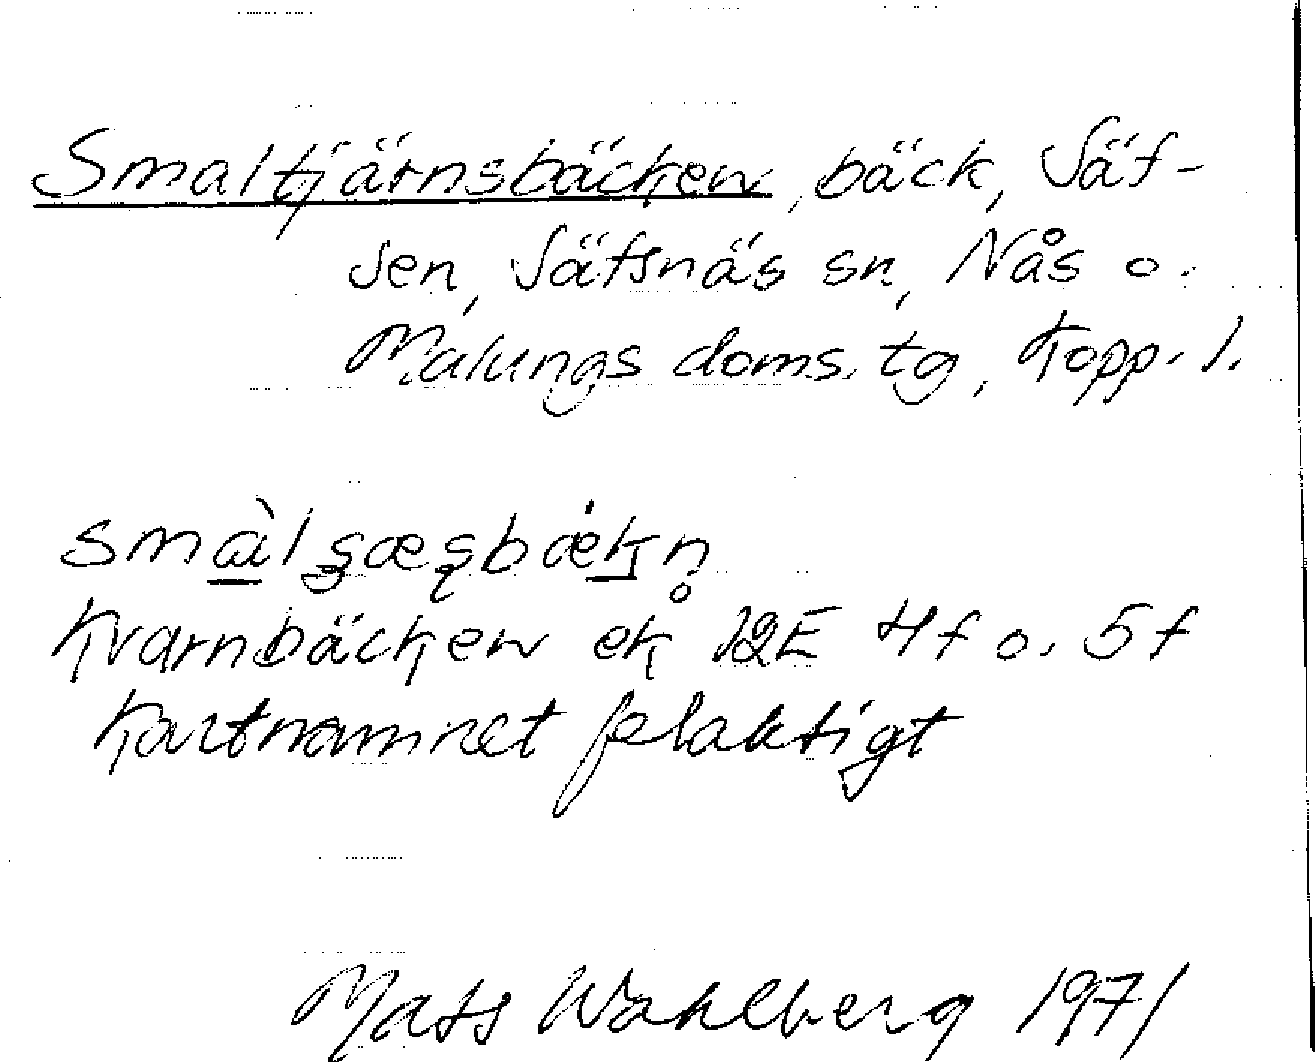 Smaltjärnsbäcken, bäck, Säf-
sen, Säfsnäs sn, Nås o.
Malungs doms. tg, Kopp. l.
Kvarnbäcken ek 12E 4f o. 5f
Kartnamnet felaktigt
Mats Wahlberg 1971